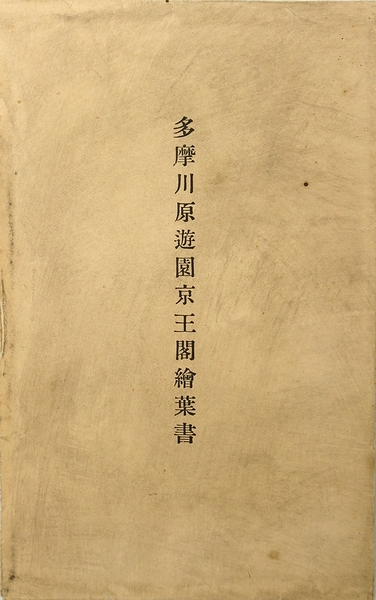 多摩川原遊園京王閣繪葉書